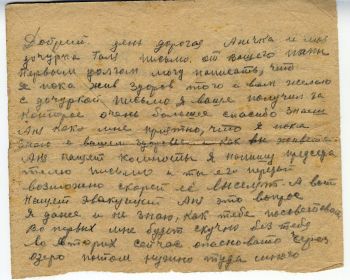 Добрый день дорогая Анечка и моя
дочурка Галя письмо от вашего папы
Первым долгом могу написать, что
я пока жив здоров того и вам желаю
с дочуркой письмо я ваше получил за
которое очень большое спасибо знаешь
Аня как мне приятно, что я пока
знаю о вашем здоровье и как вы живете
Аня насчет комнаты я напишу председа
телю письмо и ты его передай
возможно скорей её выселят. А вот
насчет эвакуируют Аня это вопрос
Я даже и не знаю, как тебе посоветовать
Во первых мне будет скучно без тебя
Во вторых сейчас опасновато через
озеро потом нужно туда много